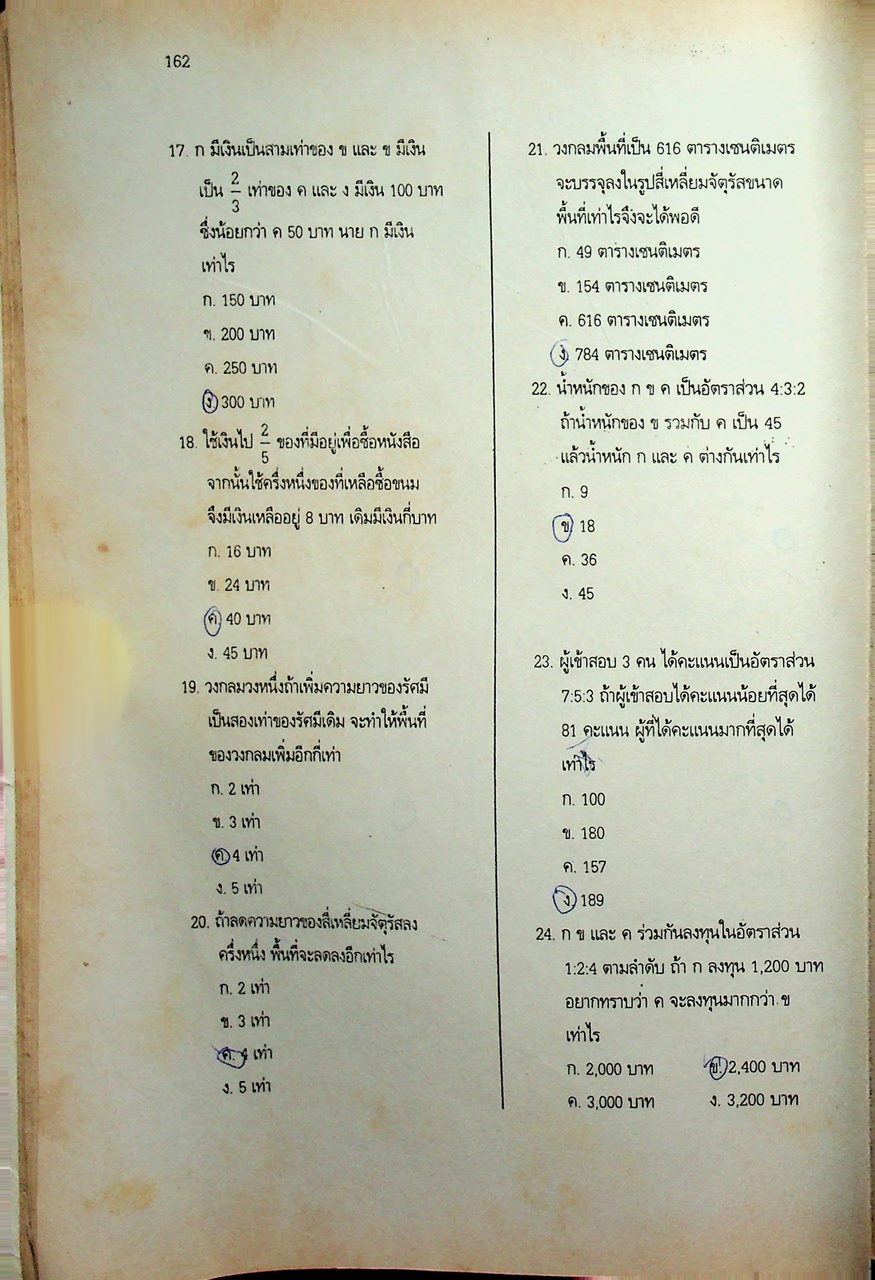 162
17. ก มีเงินเป็นสามเท่าของ ข และ ข มีเงิน
เป็น 2/3 เท่าของ ค และ ง มีเงิน 100 บาท
ซึ่งน้อยกว่า ค 50 บาท นาย ก มีเงิน
เท่าไร
ก. 150 บาท
ข. 200 บาท
ค. 250 บาท
ง. 300 บาท
18. ใช้เงินไป 2/5 ของที่มีอยู่เพื่อซื้อหนังสือ
จากนั้นใช้ครึ่งหนึ่งของที่เหลือซื้อขนม
จึงมีเงินเหลืออยู่ 8 บาท เดิมมีเงินกี่บาท
ก. 16 บาท
ข. 24 บาท
ค. 40 บาท
ง. 45 บาท
19. วงกลมวงหนึ่งถ้าเพิ่มความยาวของรัศมี
เป็นสองเท่าของรัศมีเดิม จะทำให้พื้นที่
ของวงกลมเพิ่มอีกกี่เท่า
ก. 2 เท่า
ข. 3 เท่า
ค. 4 เท่า
ง. 5 เท่า
20. ถ้าลดความยาวของสี่เหลี่ยมจัตุรัสลง
ครึ่งหนึ่ง พื้นที่จะลดลงอีกเท่าไร
ก. 2 เท่า
ข. 3 เท่า
ค. 4 เท่า
ง. 5 เท่า
21. วงกลมพื้นที่เป็น 616 ตารางเซนติเมตร
จะบรรจุลงในรูปสี่เหลี่ยมจัตุรัสขนาด
พื้นที่เท่าไรจึงจะได้พอดี
ก. 49 ตารางเซนติเมตร
ข. 154 ตารางเซนติเมตร
ค. 616 ตารางเซนติเมตร
ง. 784 ตารางเซนติเมตร
22. น้ำหนักของ ก ข ค เป็นอัตราส่วน 4:3:2
ถ้าน้ำหนักของ ข รวมกับ ค เป็น 45
แล้วน้ำหนัก ก และ ค ต่างกันเท่าไร
ก. 9
ข. 18
ค. 36
ง. 45
23. ผู้เข้าสอบ 3 คน ได้คะแนนเป็นอัตราส่วน
7:5:3 ถ้าผู้เข้าสอบได้คะแนนน้อยที่สุดได้
81 คะแนน ผู้ที่ได้คะแนนมากที่สุดได้
เท่าไร
ก. 100
ข. 180
ค. 157
ง. 189
24. ก ข และ ค ร่วมกันลงทุนในอัตราส่วน
1:2:4 ตามลำดับ ถ้า ก ลงทุน 1,200 บาท
อยากทราบว่า ค จะลงทุนมากกว่า ข
เท่าไร
ก. 2,000 บาท ข. 2,400 บาท
ค. 3,000 บาท ง. 3,200 บาท